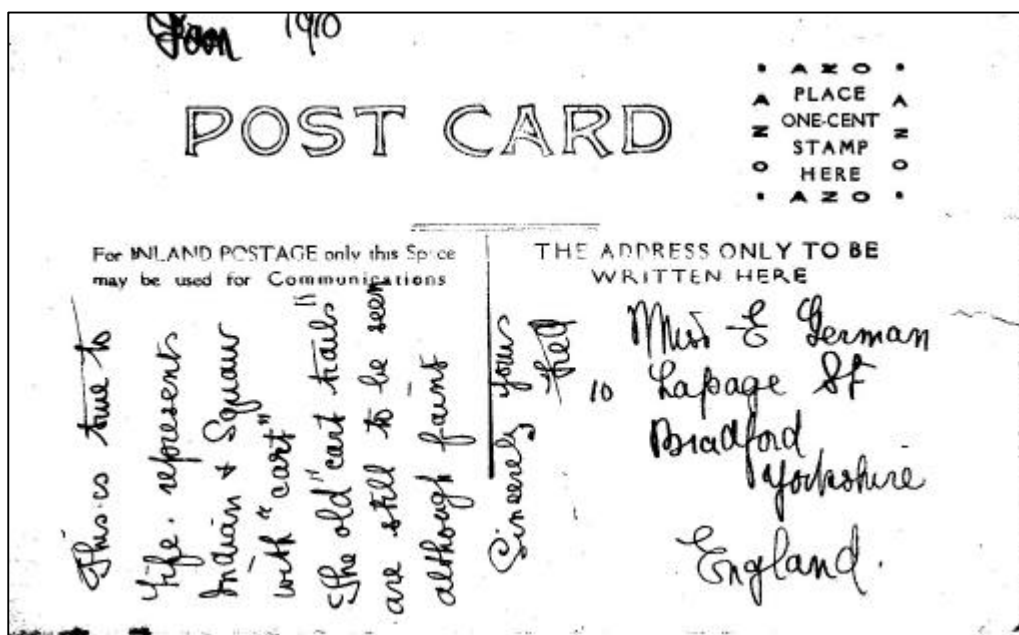 1910
POST CARD
• AZO •
PLACE
ONE-CENT
STAMP
HERE
• AZO •
AZO
AZO
For INLAND POSTAGE only this Space
may be used for Communications
THE ADDRESS ONLY TO BE
WRITTEN HERE
This is true to
life. represents
Indian & Squaw
with "cart"
The old "cart trails"
are still to be seen
although faint
Sincerely yours
Miss E German
10 Lapage St
Bradford
Yorkshire
England.